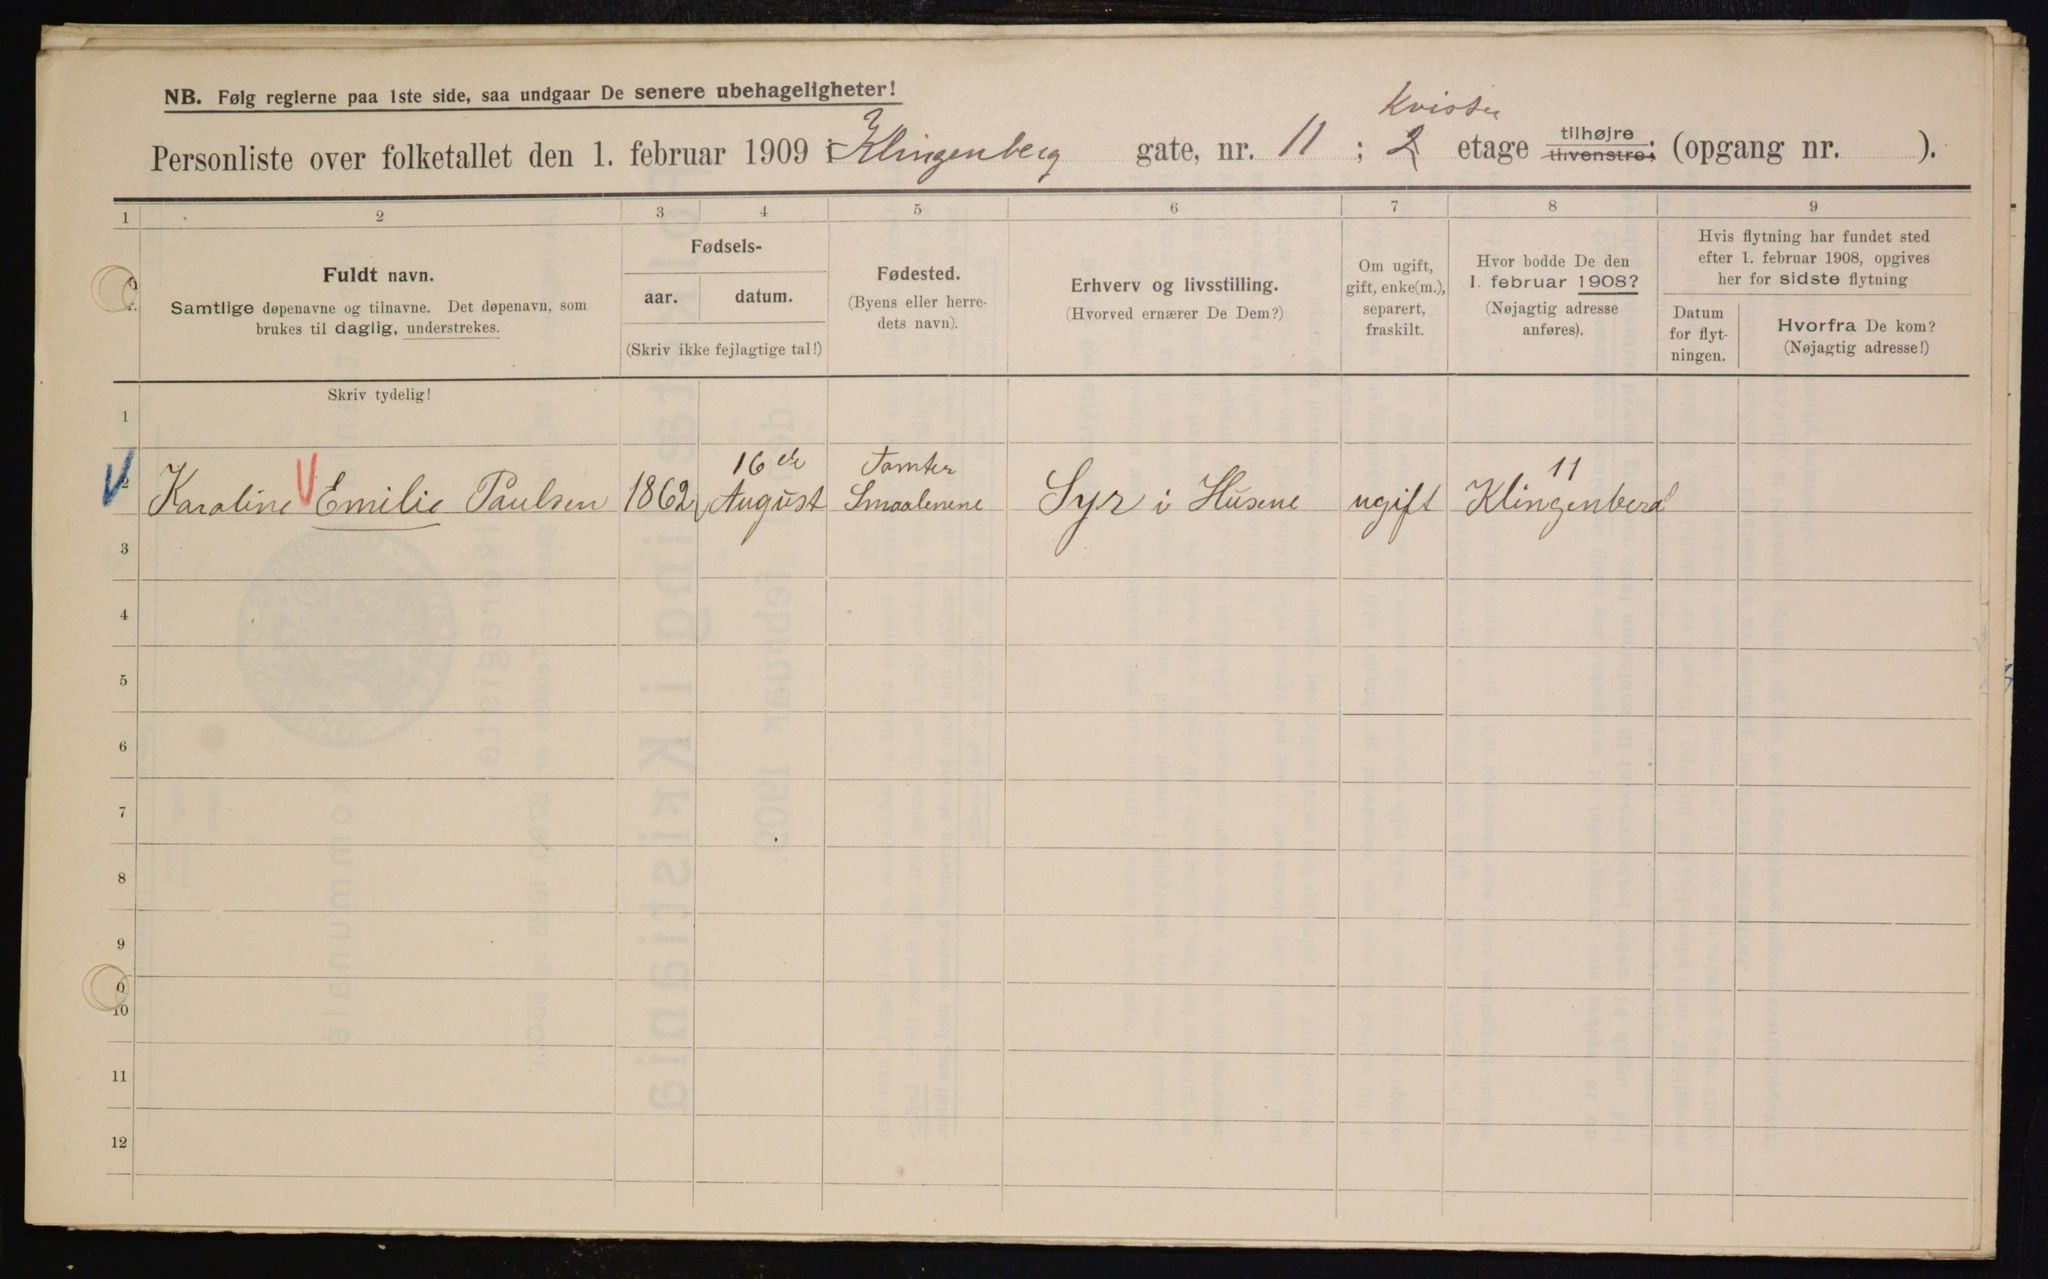 NB. Følg reglerne paa 1ste side, saa undgaar De senere ubehageligheter!
Kvisten
Personliste over folketallet den 1. februar 1909 i Klingenberg gate, nr. 11 ; 2 etage tilhøjre tilvenstre; (opgang nr. ).
1 2 3 4 5 6 7 8 9
Fuldt navn.
Samtlige døpenavne og tilnavne. Det døpenavn, som
brukes til daglig, understrekes.
Fødsels-
aar. datum.
(Skriv ikke fejlagtige tal!)
Fødested.
(Byens eller herre-
dets navn).
Erhverv og livsstilling.
(Hvorved ernærer De Dem?)
Om ugift,
gift, enke(m.),
separert,
fraskilt.
Hvor bodde De den
1. februar 1908?
(Nøjagtig adresse
anføres).
Hvis flytning har fundet sted
efter 1. februar 1908, opgives
her for sidste flytning
Datum
for flyt-
ningen.
Hvorfra De kom?
(Nøjagtig adresse!)
Skriv tydelig!
1
16de Tomter 11
2 Karoline Emilie Paulsen 1862 August Smaalenene Syr i Husene ugift Klingenberd
3
4
5
6
7
8
9
10
11
12